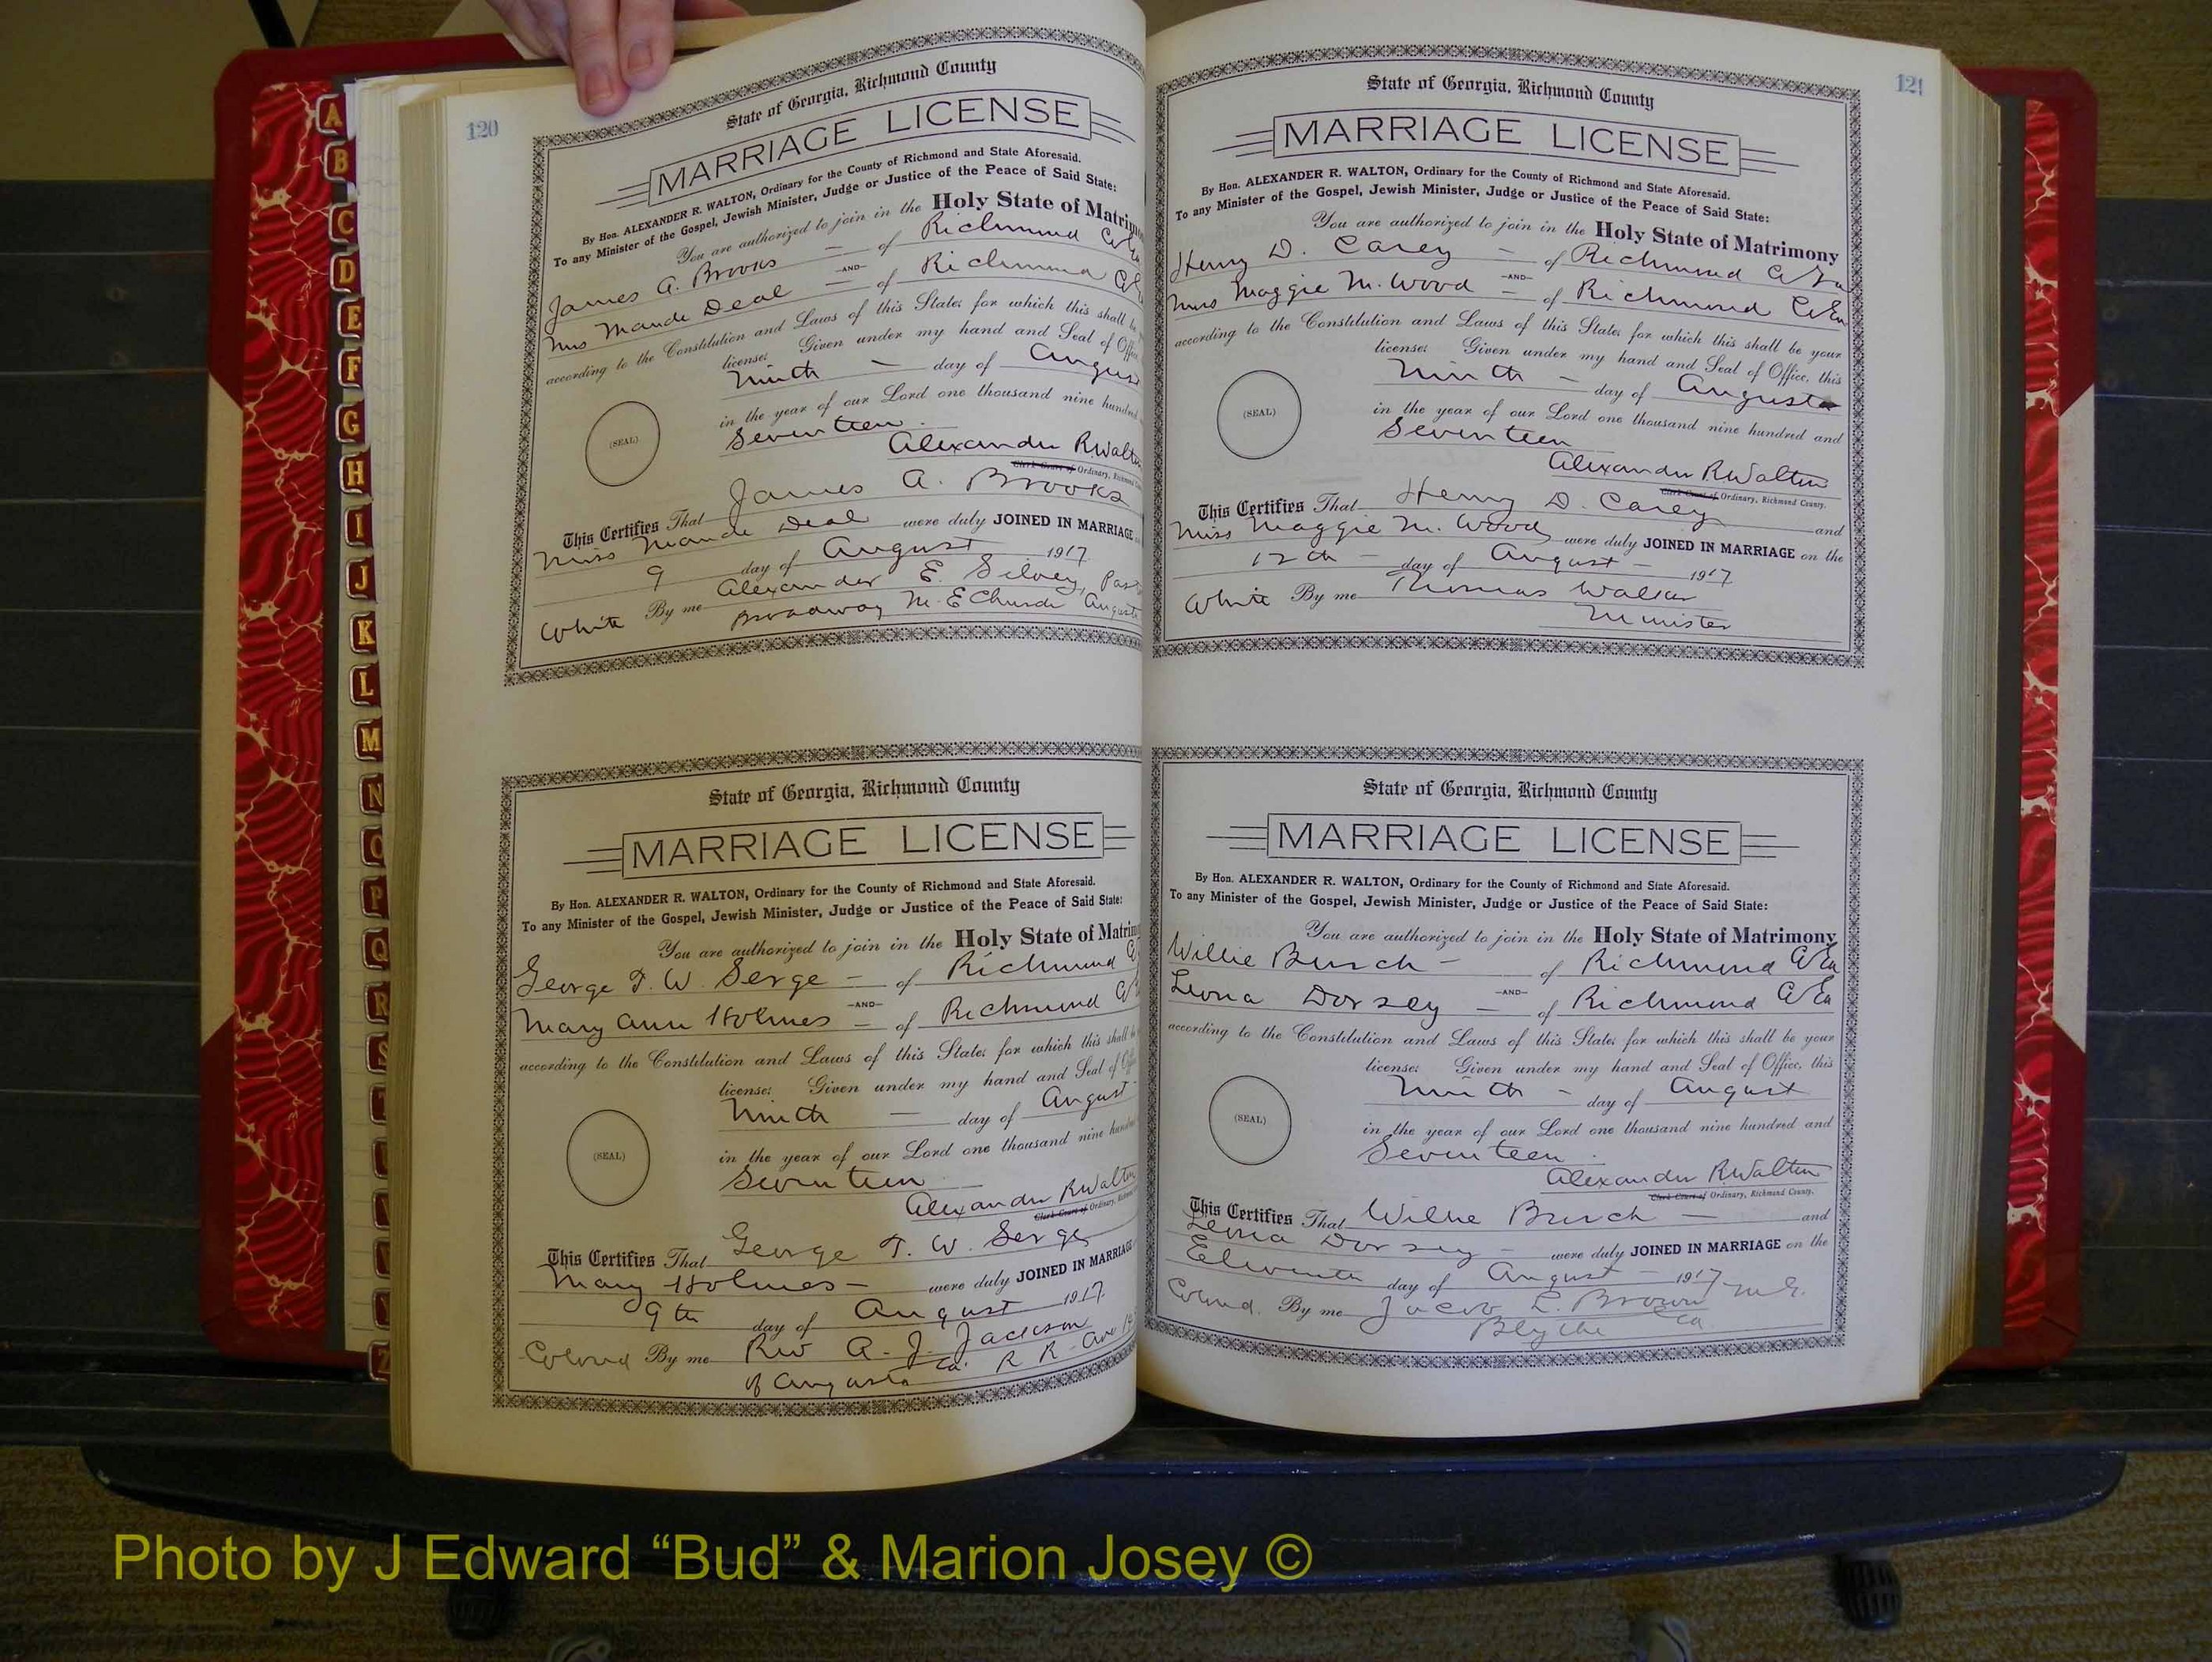 A
B
C
D
E
F
G
H
I
J
K
L
M
N
O
P
Q
R
S
Z
120
State of Georgia, Richmond County
MARRIAGE LICENSE
By Hon. ALEXANDER R. WALTON, Ordinary for the County of Richmond and State Aforesaid.
To any Minister of the Gospel, Jewish Minister, Judge or Justice of the Peace of Said State:
You are authorized to join in the Holy State of Matrimo
James A. Brooks — of Richmond Co Ga
—AND—
Miss Maude Deal — of Richmond Co
according to the Constitution and Laws of this State; for which this shall be
license: Given under my hand and Seal of Offic
Ninth — day of August
in the year of our Lord one thousand nine hundred
Seventeen
Alexander R Walton
Clerk Court of Ordinary, Richmond
This Certifies That James A. Brooks
Miss Maude Deal were duly JOINED IN MARRIAGE
9 day of August 1917
White By me Alexander E. Silvey, Past
Broadway M. E Church Augusta
State of Georgia, Richmond County
MARRIAGE LICENSE
By Hon. ALEXANDER R. WALTON, Ordinary for the County of Richmond and State Aforesaid.
To any Minister of the Gospel, Jewish Minister, Judge or Justice of the Peace of Said State:
You are authorized to join in the Holy State of Matrim
George T. W. Serge — of Richmond
—AND—
Mary Ann Holmes — of Richmond
according to the Constitution and Laws of this State; for which this shall
license: Given under my hand and Seal of Off
Ninth — day of August
(SEAL)
in the year of our Lord one thousand nine hundred
Seventeen
Alexander R Walton
Clerk Court of Ordinary,
This Certifies That George T. W. Serge
Mary Holmes — were duly JOINED IN MARRIAGE
9th day of August 1917
Colored By me Rev A. J. Jackson
of Augusta Ga. R R. Ave
121
State of Georgia, Richmond County
MARRIAGE LICENSE
By Hon. ALEXANDER R. WALTON, Ordinary for the County of Richmond and State Aforesaid.
To any Minister of the Gospel, Jewish Minister, Judge or Justice of the Peace of Said State:
You are authorized to join in the Holy State of Matrimony
Henry D. Carey — of Richmond Co Ga
—AND—
Miss Maggie M. Wood — of Richmond Co Ga
according to the Constitution and Laws of this State; for which this shall be your
license: Given under my hand and Seal of Office, this
Ninth — day of August
(SEAL)
in the year of our Lord one thousand nine hundred and
Seventeen
Alexander R Walton
Clerk Court of Ordinary, Richmond County.
This Certifies That Henry D. Carey and
Miss Maggie M. Wood were duly JOINED IN MARRIAGE on the
12th — day of August — 1917
White By me Thomas Walker
Minister
State of Georgia, Richmond County
MARRIAGE LICENSE
By Hon. ALEXANDER R. WALTON, Ordinary for the County of Richmond and State Aforesaid.
To any Minister of the Gospel, Jewish Minister, Judge or Justice of the Peace of Said State:
You are authorized to join in the Holy State of Matrimony
Willie Burch — of Richmond Co Ga
—AND—
Leona Dorsey — of Richmond Co Ga
according to the Constitution and Laws of this State; for which this shall be your
license: Given under my hand and Seal of Office, this
Ninth — day of August
(SEAL)
in the year of our Lord one thousand nine hundred and
Seventeen
Alexander R Walton
Clerk Court of Ordinary, Richmond County.
This Certifies That Willie Burch — and
Leona Dorsey — were duly JOINED IN MARRIAGE on the
Eleventh day of August — 1917
Colored. By me Jacob L. Brown M.G.
Blythe Ga
Photo by J Edward “Bud” & Marion Josey ©